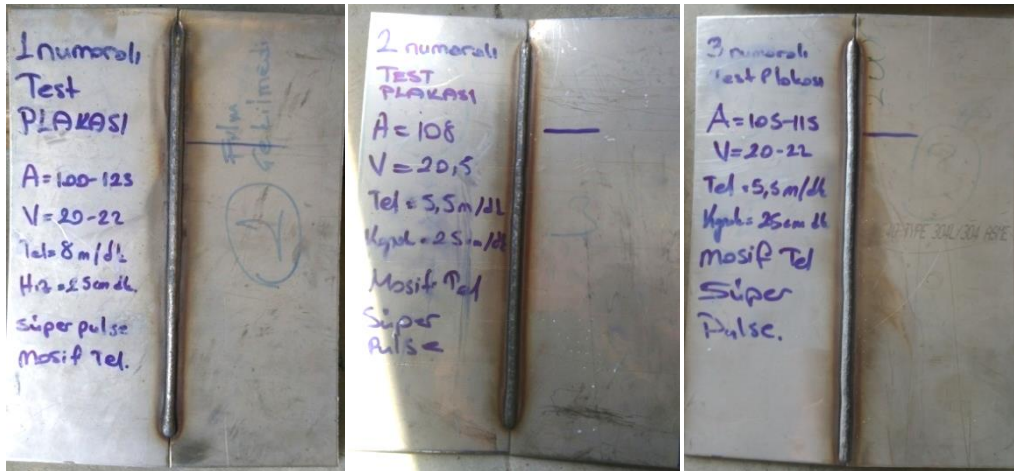 1 numaralı
Test
PLAKASI
A = 100-125
V = 20-22
Tel = 8 m/dk
Hız = 25cm dk.
süper pulse
mosif Tel.
Film
Çekilmedi
1
2 numaralı
TEST
PLAKASI
A = 108
V = 20,5
Tel = 5,5 m/dk
= 25cm/dk
Mosif Tel
Süper
Pulse
3 numaralı
Test Plakası
A = 105-115
V = 20-22
Tel = 5,5 m/dk
= 25cm dk
mosif Tel
Süper
Pulse.
304L/304 ASME